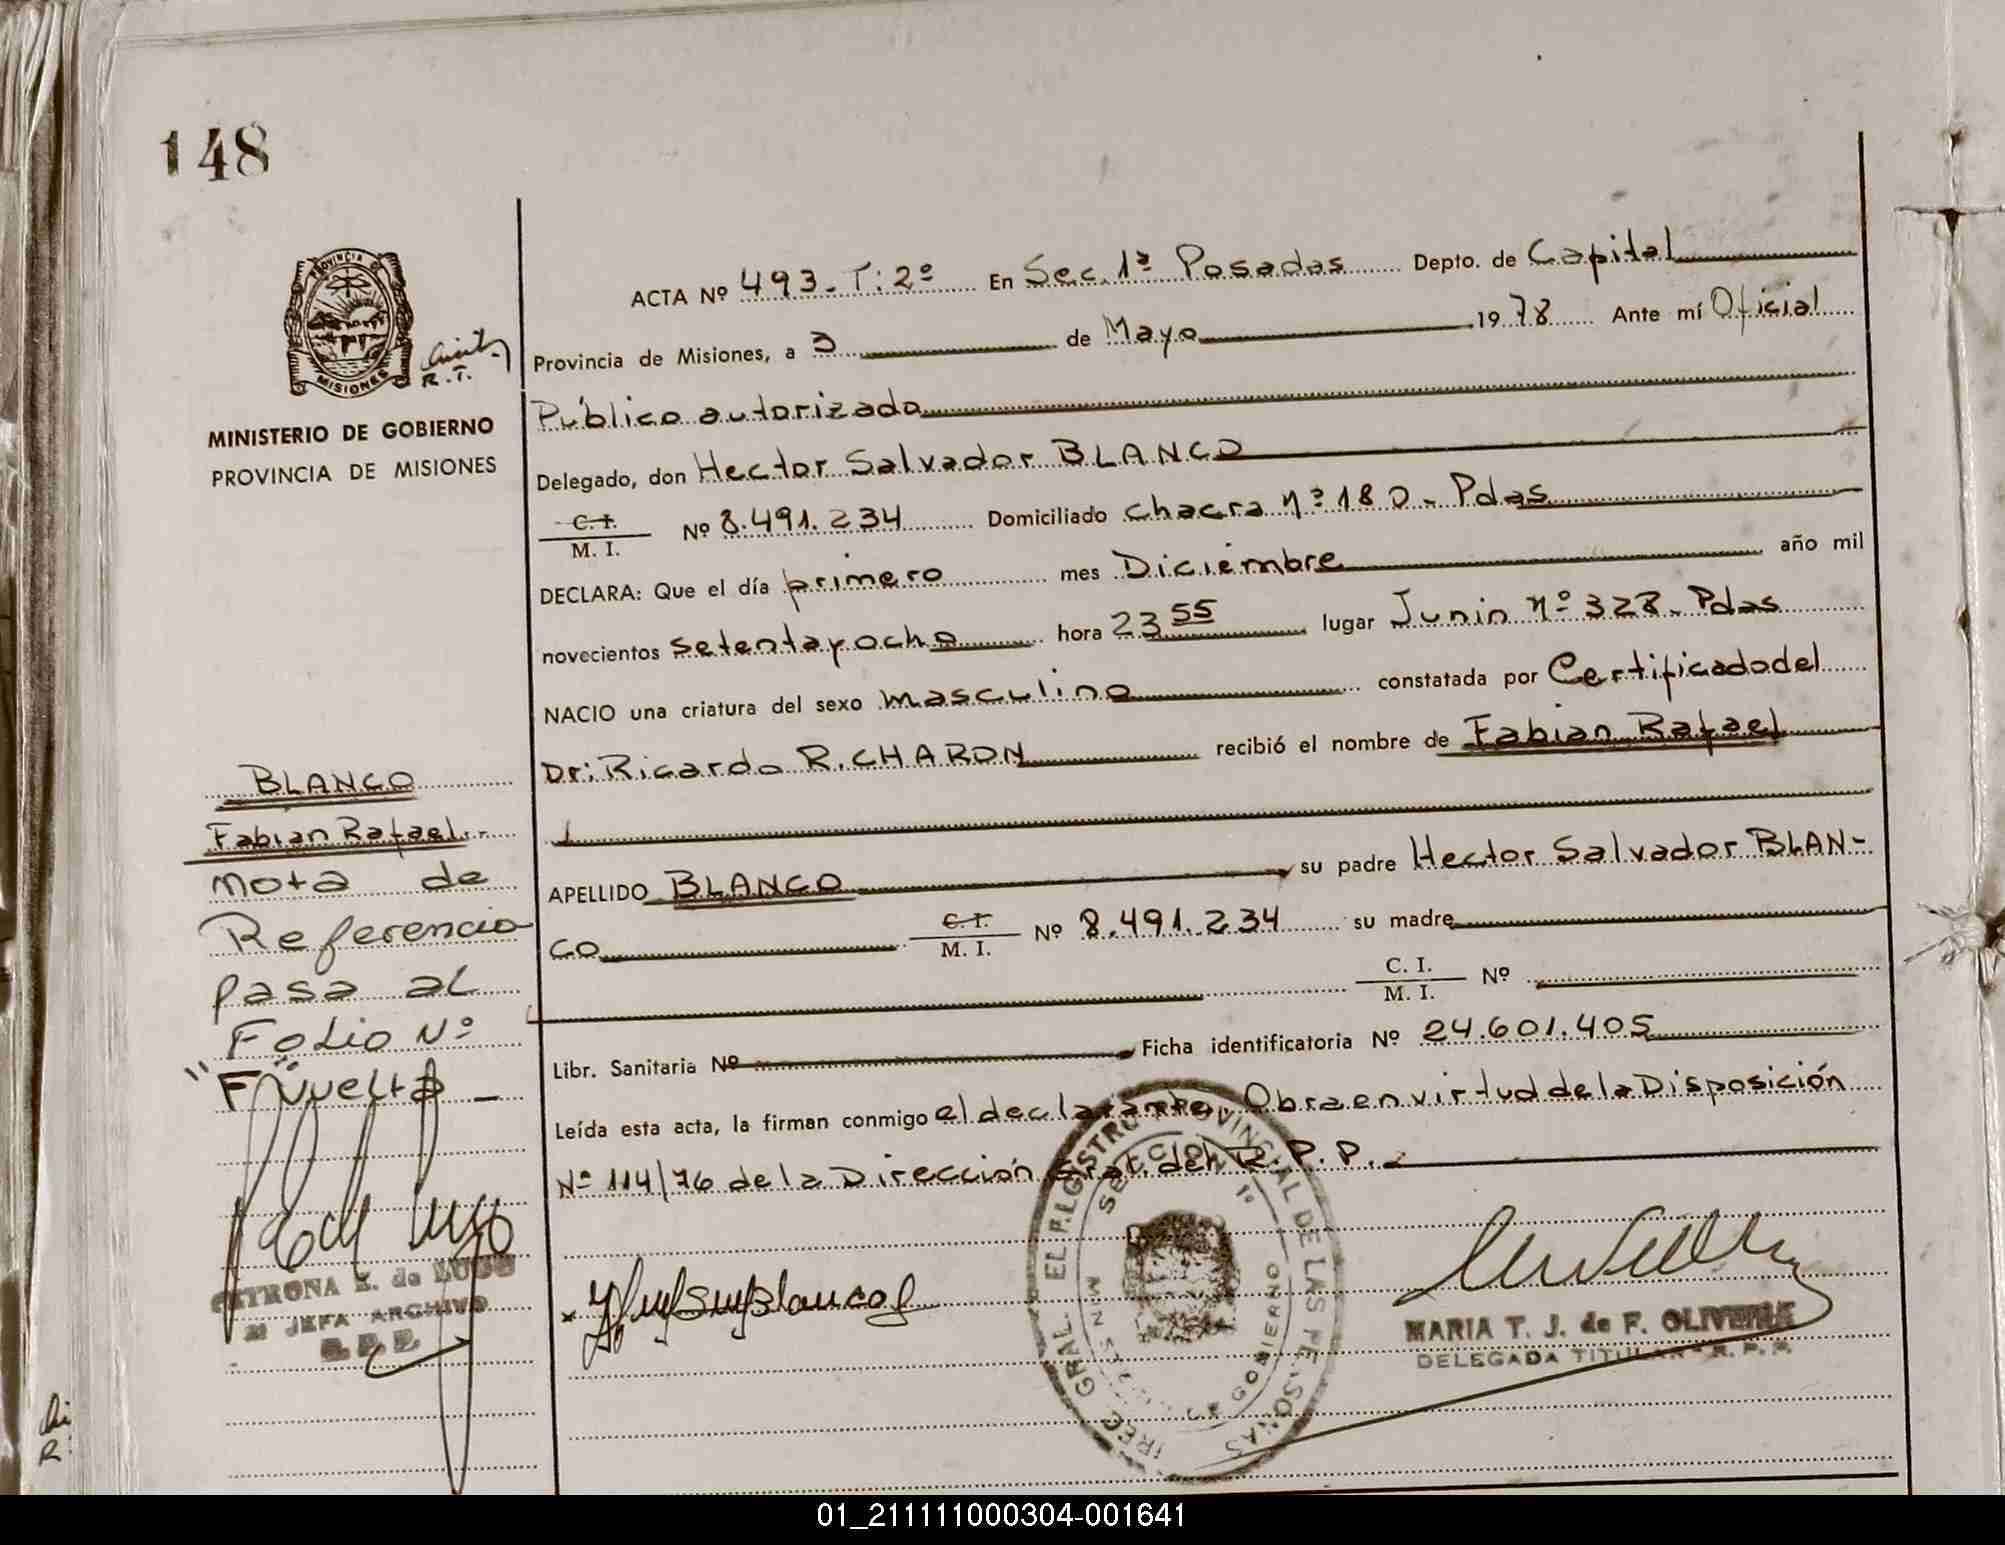 148
PROVINCIA DE
MISIONES
R.T.
MINISTERIO DE GOBIERNO
PROVINCIA DE MISIONES
ACTA Nº 493-T:2º En Sec. 1ª Posadas Depto. de Capital
Provincia de Misiones, a 3 de Mayo 1978 Ante mí Oficial
Público autorizado
Delegado, don Hector Salvador BLANCO
C. I.
M. I. Nº 8.491.234 Domiciliado chacra nº 180- Pdas
DECLARA: Que el día primero mes Diciembre año mil
novecientos setentayocho hora 23 55 lugar Junin nº 328- Pdas
NACIO una criatura del sexo masculino constatada por Certificadodel
Dr: Ricardo R. CHARON recibió el nombre de Fabian Rafael
APELLIDO BLANCO su padre Hector Salvador BLAN-
CO C. I. M. I. Nº 8.491.234 su madre
C. I.
M. I. Nº
Libr. Sanitaria Nº Ficha identificatoria Nº 24.601.405
Leída esta acta, la firman conmigo el declarante. Obra en virtud de la Disposición
Nº 114/76 de la Dirección Gral. del R.P.P.
BLANCO
Fabian Rafael
Nota de
Referencia
pasa al
Folio Nº
F Vuelta -
PETRONA E. de LUGO
JEFA ARCHIVO
R. P. P.
Blanco
DIREC. GRAL. DEL REGISTRO PROVINCIAL DE LAS PERSONAS
SECCION 1ª
MINISTERIO DE GOBIERNO
MARIA T. J. de F. OLIVEIRA
DELEGADA TITULAR - R. P. P.
01_211111000304-001641